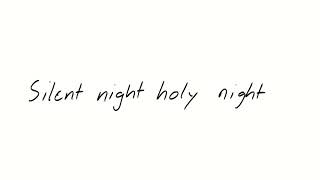 Silent night holy night